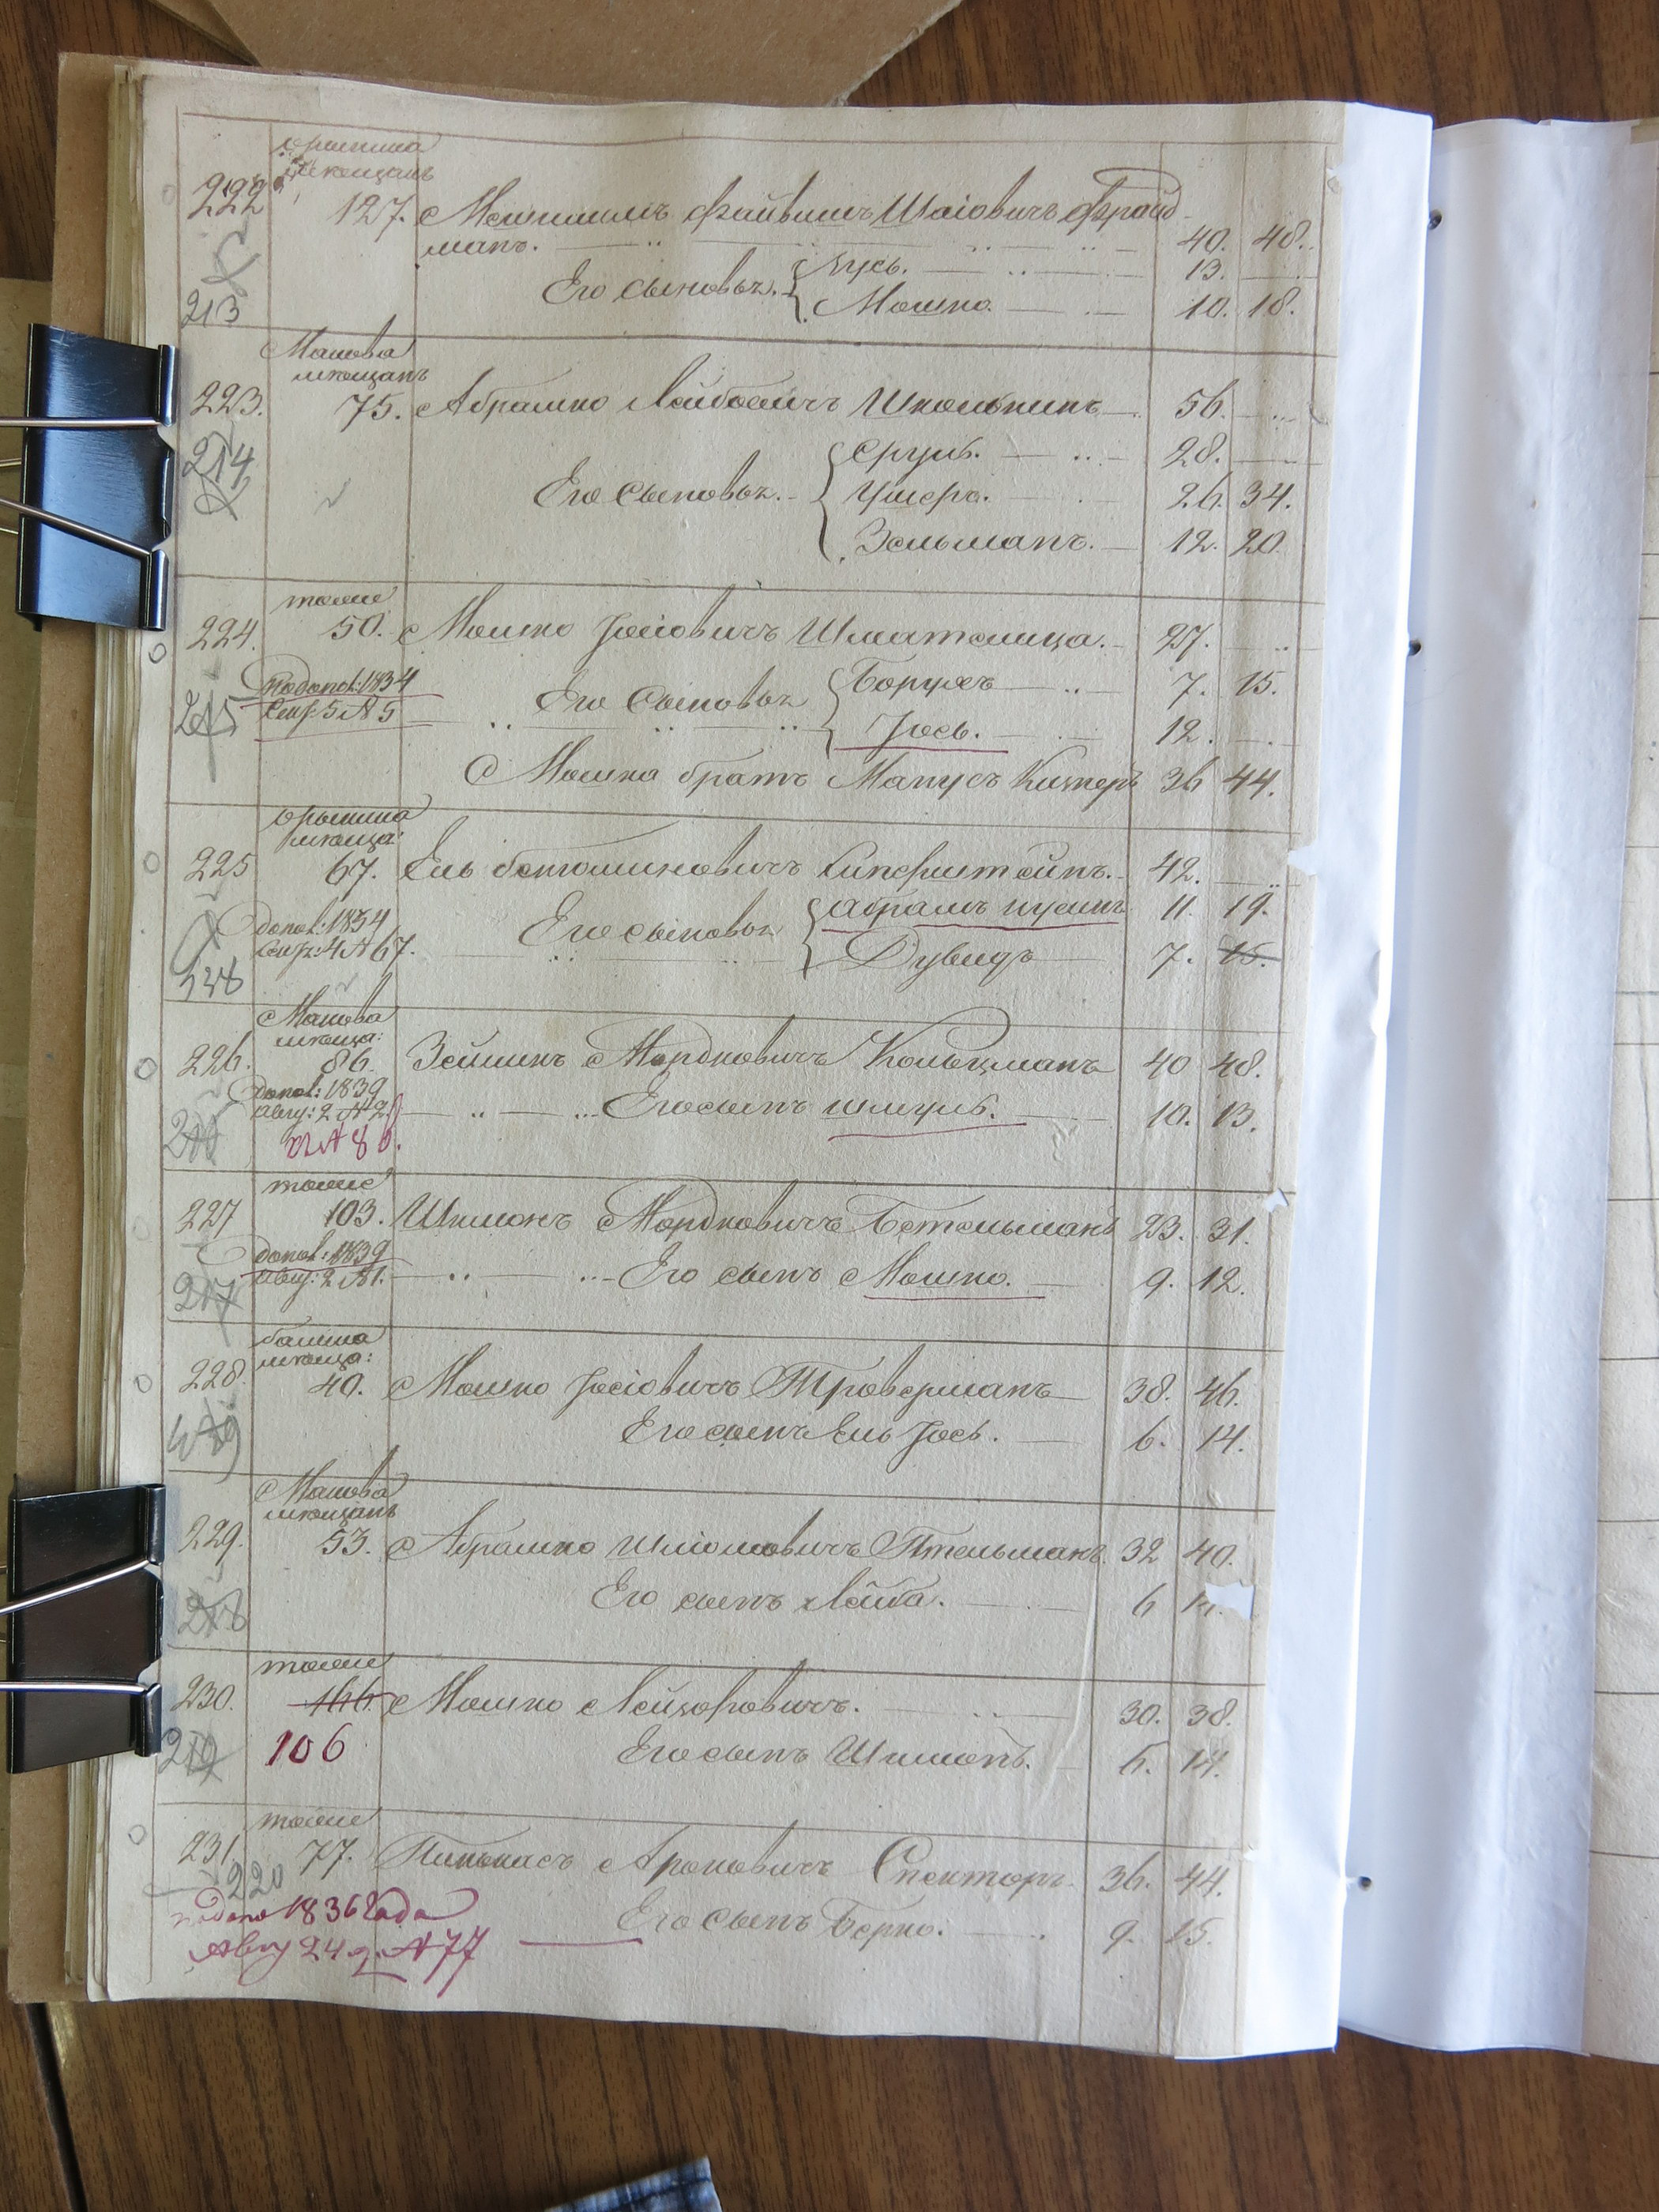 орынина
мещанъ
222 127. Менашимъ Файвишъ Шаіовичъ Фрайд-
манъ. 40. 48.
Его сыновья. Зусь. 13.
213 Мошко. 10. 18.
Макова
мещанъ
223. 75. Абрамко Лейбовичъ Школьникъ 56.
214 Сруль. 28.
Его сыновья. Ушеръ. 26. 34.
Зельманъ. 12. 20.
тоже
224. 50. Мошко Іосіовичъ Шматолица. 27.
По допол: 1834
215 Сеп: 5 № 5
Его сыновья Борухъ 7. 15.
Іось. 12.
Мошка братъ Манусъ Кизнеръ 36 44.
орынина
мѣща:
225 67. Ель беніоминовичъ Гинсрштейнъ. 42.
допол: 1834
Сеп: 4 № 67.
Его сыновья Абрамъ нусинъ 11. 19.
Дувидъ 7. 15.
Макова
мѣща:
226. 86. Зейликъ Мордковичъ Кольцманъ 40 48.
допол: 1839
Авгу: 2 № 2
Его сынъ шмуль. 10. 13.
тоже
227 103. Шимонъ Мордковичъ Бетельманъ 23. 31.
допол: 1839
217 Авгу: 2 № 1. Его сынъ Мошко. 9. 12.
балина
мѣща:
228. 40. Мошко Іосіовичъ Троверманъ 38. 46.
Его сынъ Ель Іось. 6. 14.
Макова
мѣщанъ
229. 53. Абрамко Шліомовичъ Птельманъ. 32 40.
218 Его сынъ Лейба. 6
тоже
230. 166 Мошко Лейзоровичъ. 30. 38.
219 106 Его сынъ Шимонъ. 6. 14.
тоже
231 77. Пинькасъ Ароновичъ Спекторъ. 36. 44.
220
подано 1836 года
Его сынъ Берко. 9. 15.
Авгу 24 д. № 77